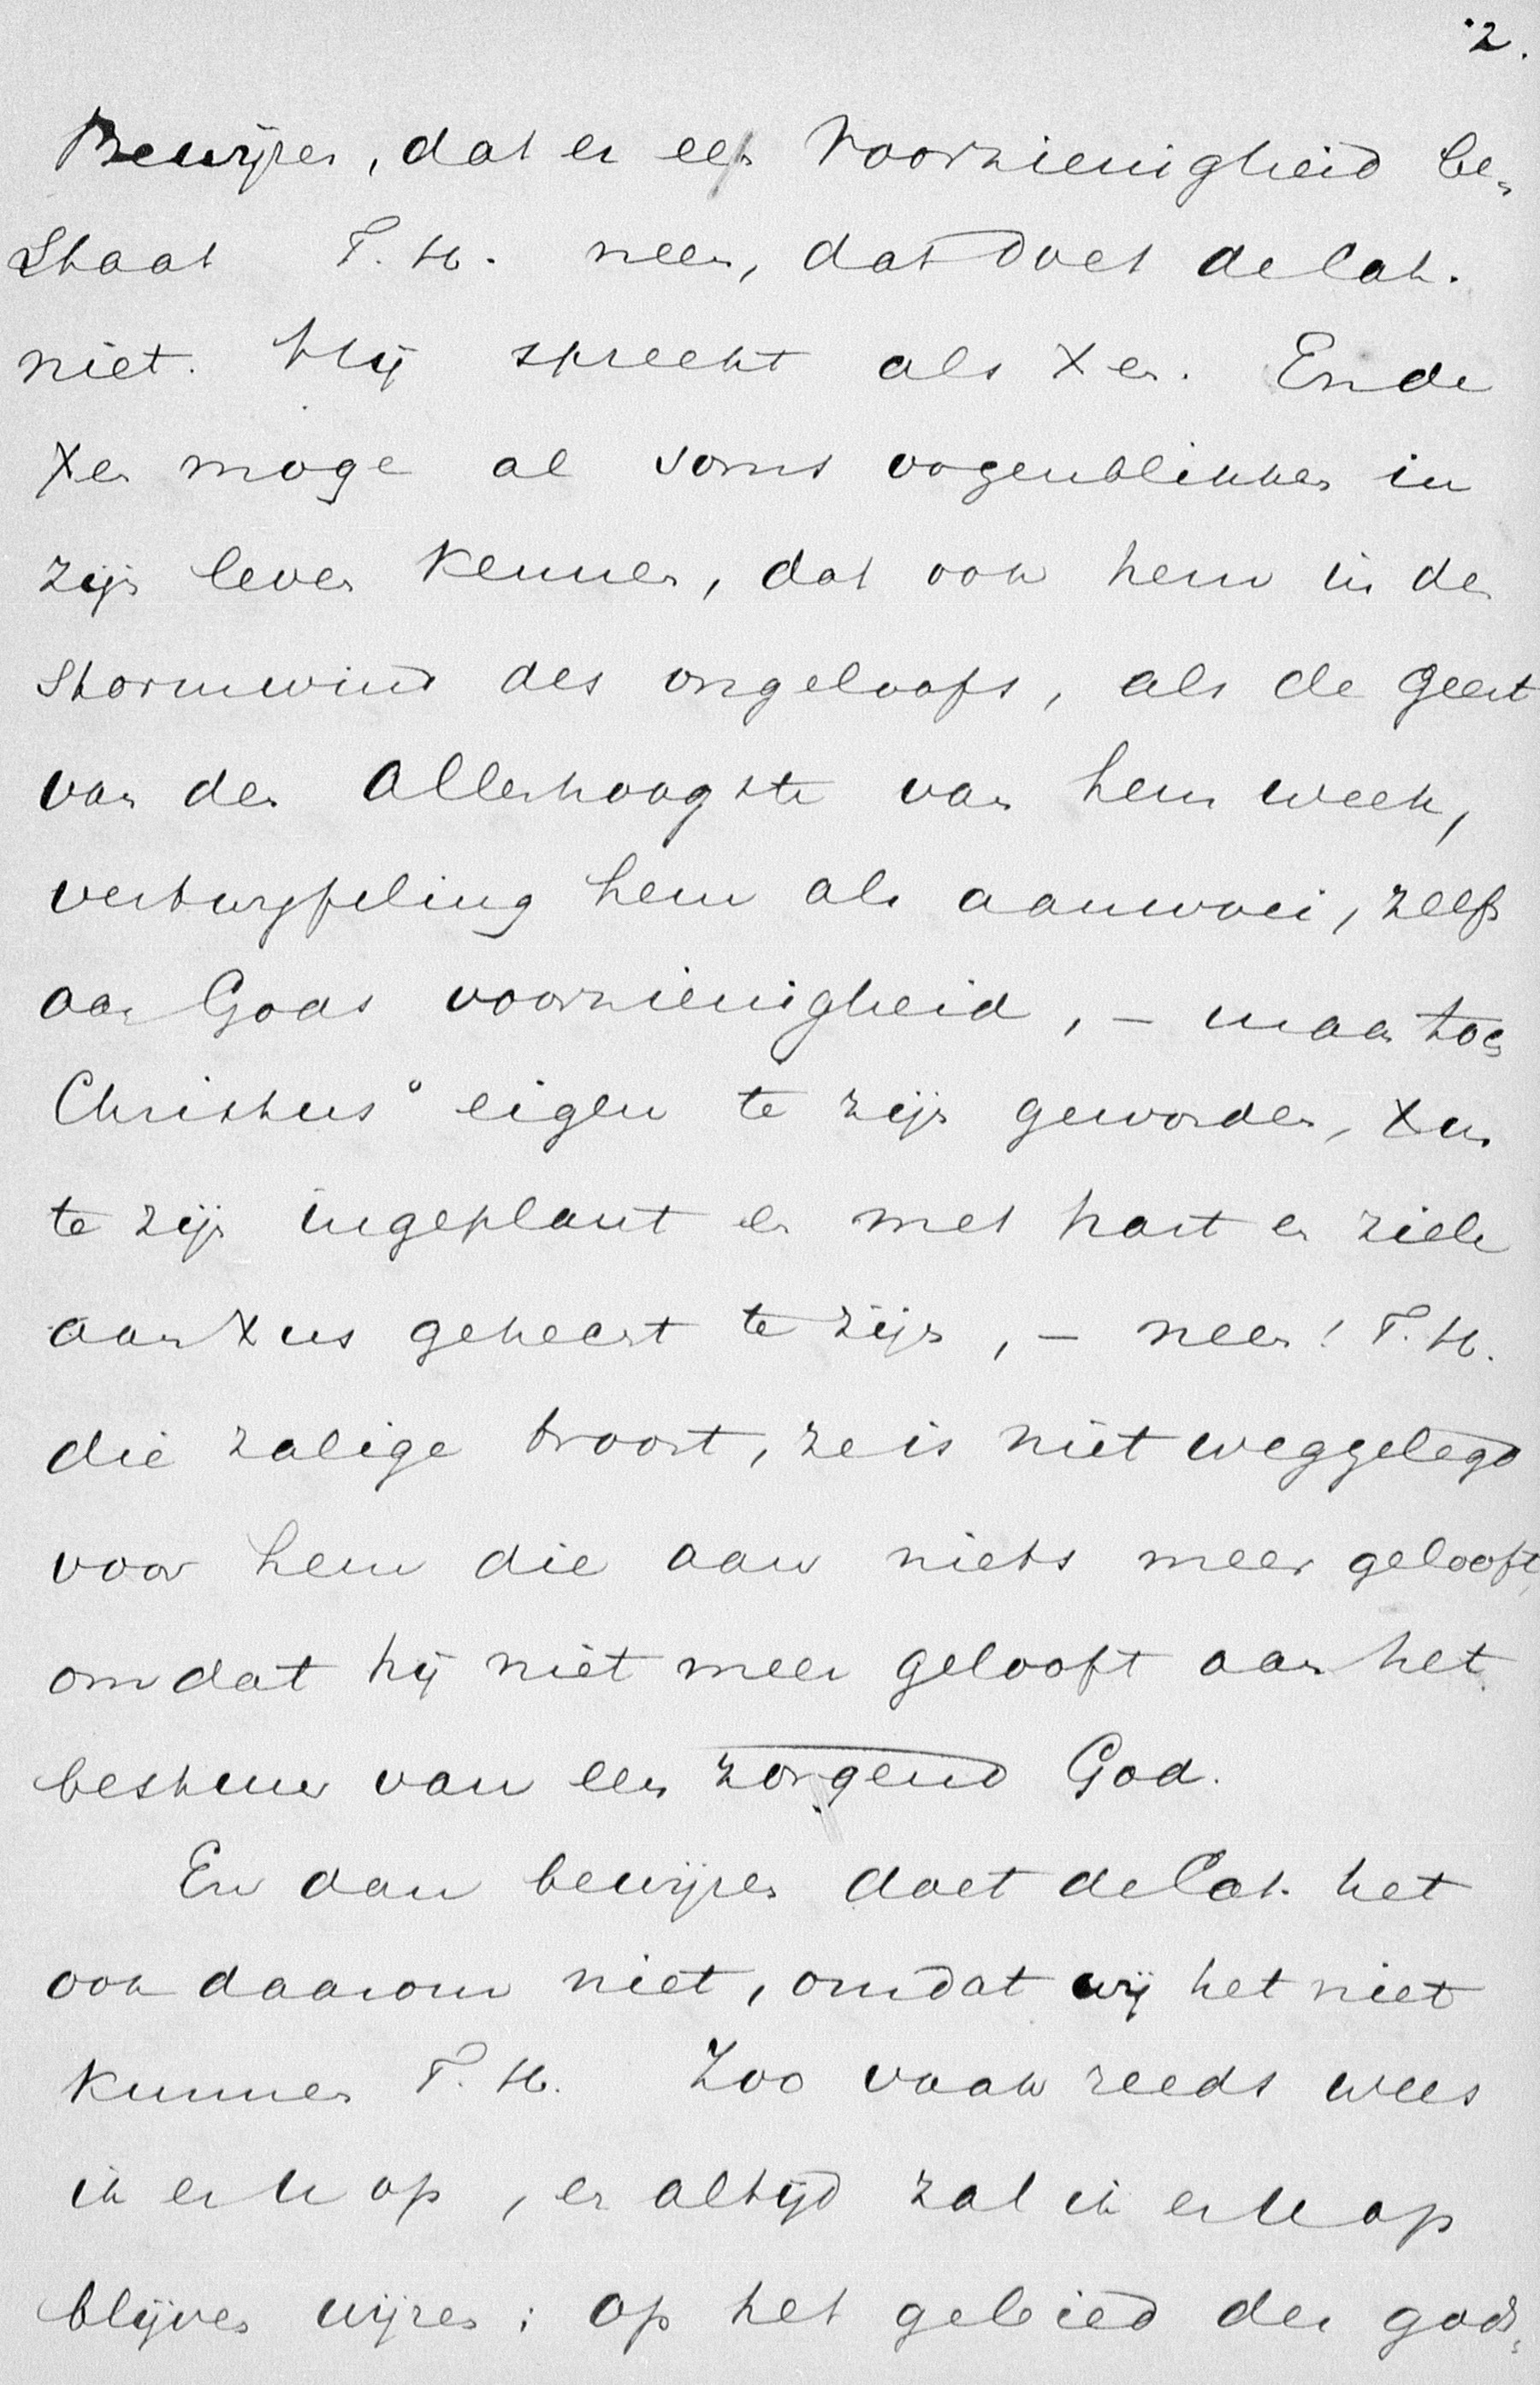 2.
Bewijzen, dat er een Voorzienigheid be-
staat T. H. neen, dat doet de Cat.
niet. Hij spreekt als Xen. En de
Xen moge al soms oogenblikken in
zijn leven kennen, dat ook hem in den
stormwind des ongeloofs, als de geest
van den Allerhoogste van hem week,
vertwijfeling hem als aanwoei, zelfs
aan Gods voorzienigheid, – maar toen
Christus' eigen te zijn geworden, Xus
te zijn ingeplant en met hart en ziele
aan Xus gehecht te zijn, – neen! T. H.
die zalige troost, ze is niet weggelegd
voor hem die aan niets meer gelooft,
omdat hij niet meer gelooft aan het
bestuur van een zorgend God.
En dan bewijzen doet de Cat. het
ook daarom niet, omdat wij het niet
kunnen T. H. Zoo vaak reeds wees
ik er U op, en altijd zal ik er U op
blijven wijzen: op het gebied der gods-